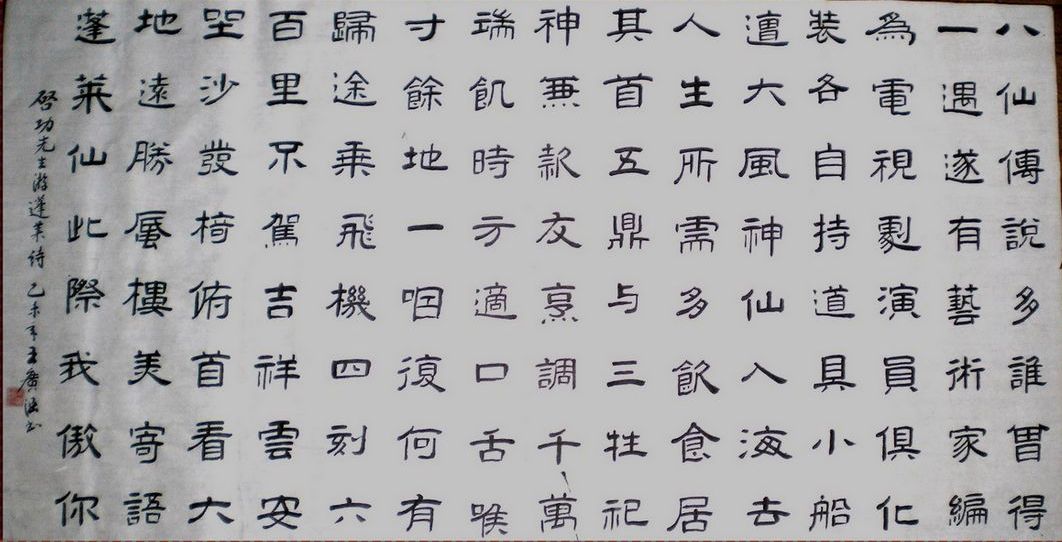 八仙傳說多誰曾得
一遇遂有藝術家編
為電視劇演員俱化
裝各自持道具小船
遭大風神仙入海去
人生所需多飲食居
其首五鼎与三牲祀
神兼款友烹調千萬
端飢時方適口舌喉
寸餘地一咽復何有
歸途乘飛機四刻六
百里不駕吉祥雲安
坐沙發椅俯首看大
地遠勝蜃樓美寄語
蓬萊仙此際我傲你
啓功先生游蓬莱诗 乙未年王廣书